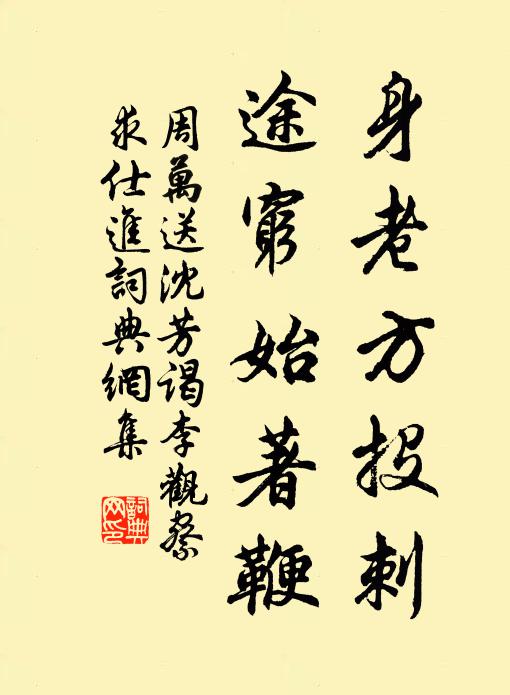 身老方投刺
途窮始著鞭
周萬送沈芳謁李觀察
求仕進詞典網集
詞典
網印